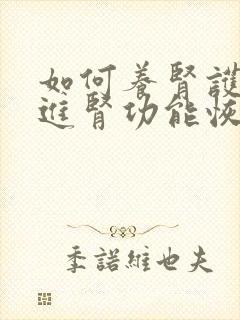 如何養腎護
進腎功能恢
季諾維也夫